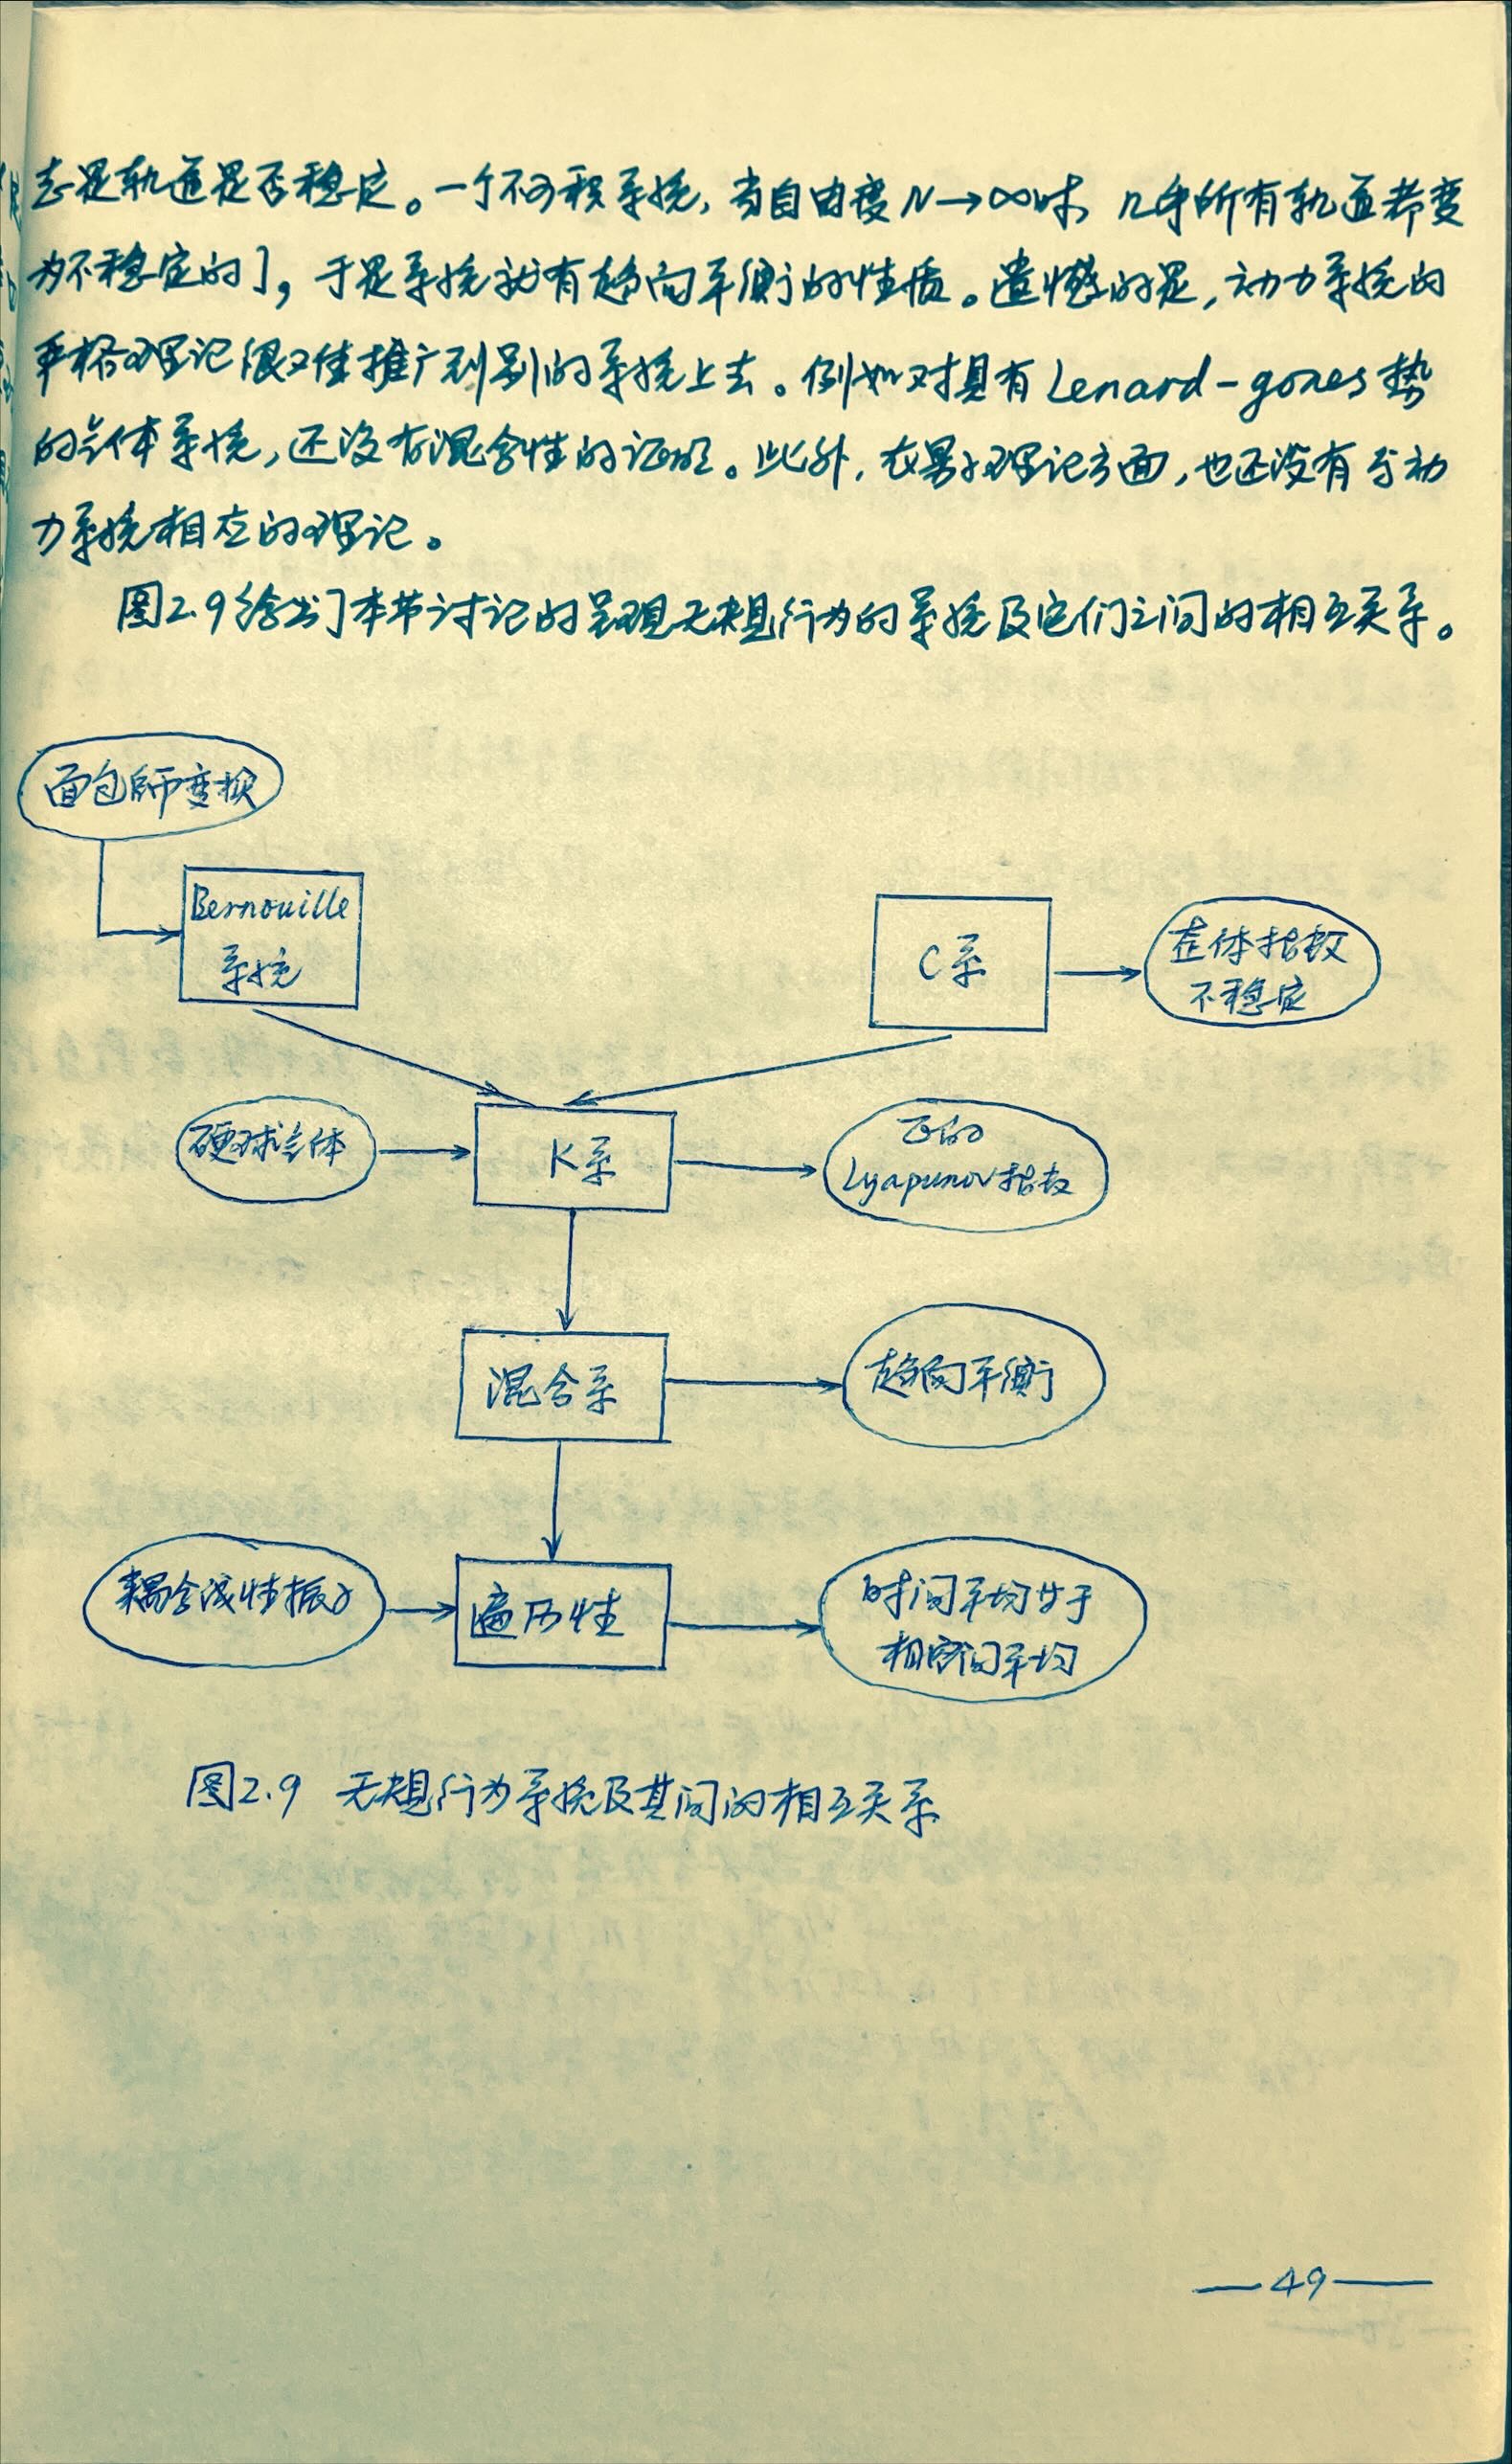 志是轨道是否稳定。一个不可积系统,当自由度N→∞时,几乎所有轨道都变
为不稳定的了,于是系统就有趋向平衡的性质。遗憾的是,动力系统的
严格理论很难推广到别的系统上去。例如对具有Lenard-gones势
的气体系统,还没有混合性的证明。此外,在男子理论方面,也还没有与动
力系统相应的理论。
图2.9给出了本节讨论的呈现无规行为的系统及它们之间的相互关系。
面包師变换
Bernouille
系统
C系
整体指数
不稳定
硬球气体
K系
正的
Lyapunov指数
混合系
趋向平衡
耦合线性振子
遍历性
时间平均等于
相空间平均
图2.9 无规行为系统及其间的相互关系
—49—